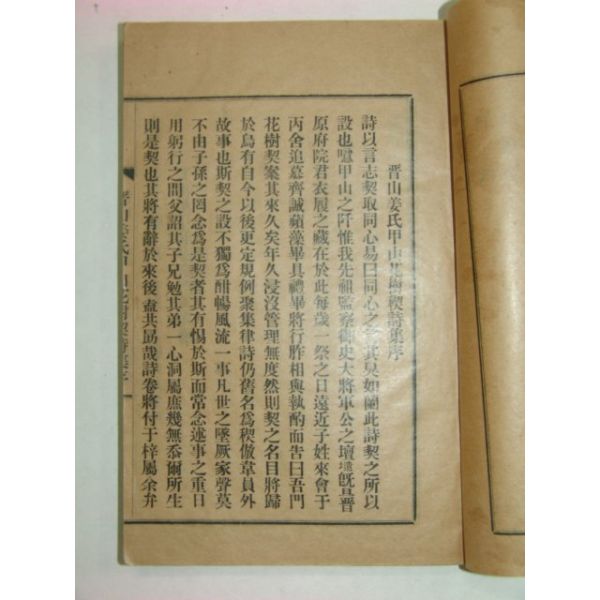 晋山姜氏甲山花樹稧詩集序
詩以言志契取同心易曰同心之言其臭如蘭此詩契之所以
設也噫甲山之阡惟我先祖監察御史大將軍公之壇墠曁晋
原府院君衣履之藏在於此每歲一祭之日遠近子姓來會于
丙舍追慕齊誠蘋藻畢具禮畢將行胙相與執酌而告曰吾門
花樹契案其來久矣年久浸沒管理無度然則契之名目將歸
於烏有自今以後更定規例聚集律詩仍舊名爲稧倣韋員外
故事也斯契之設不獨爲酣暢風流一事凡世之墜厥家聲莫
不由子孫之罔念爲是契者其有惕於斯而常念述事之重日
用躬行之間父詔其子兄勉其弟一心洞屬庶幾無忝爾所生
則是契也其將有辭於來後盍共勗哉詩卷將付于梓屬余弁